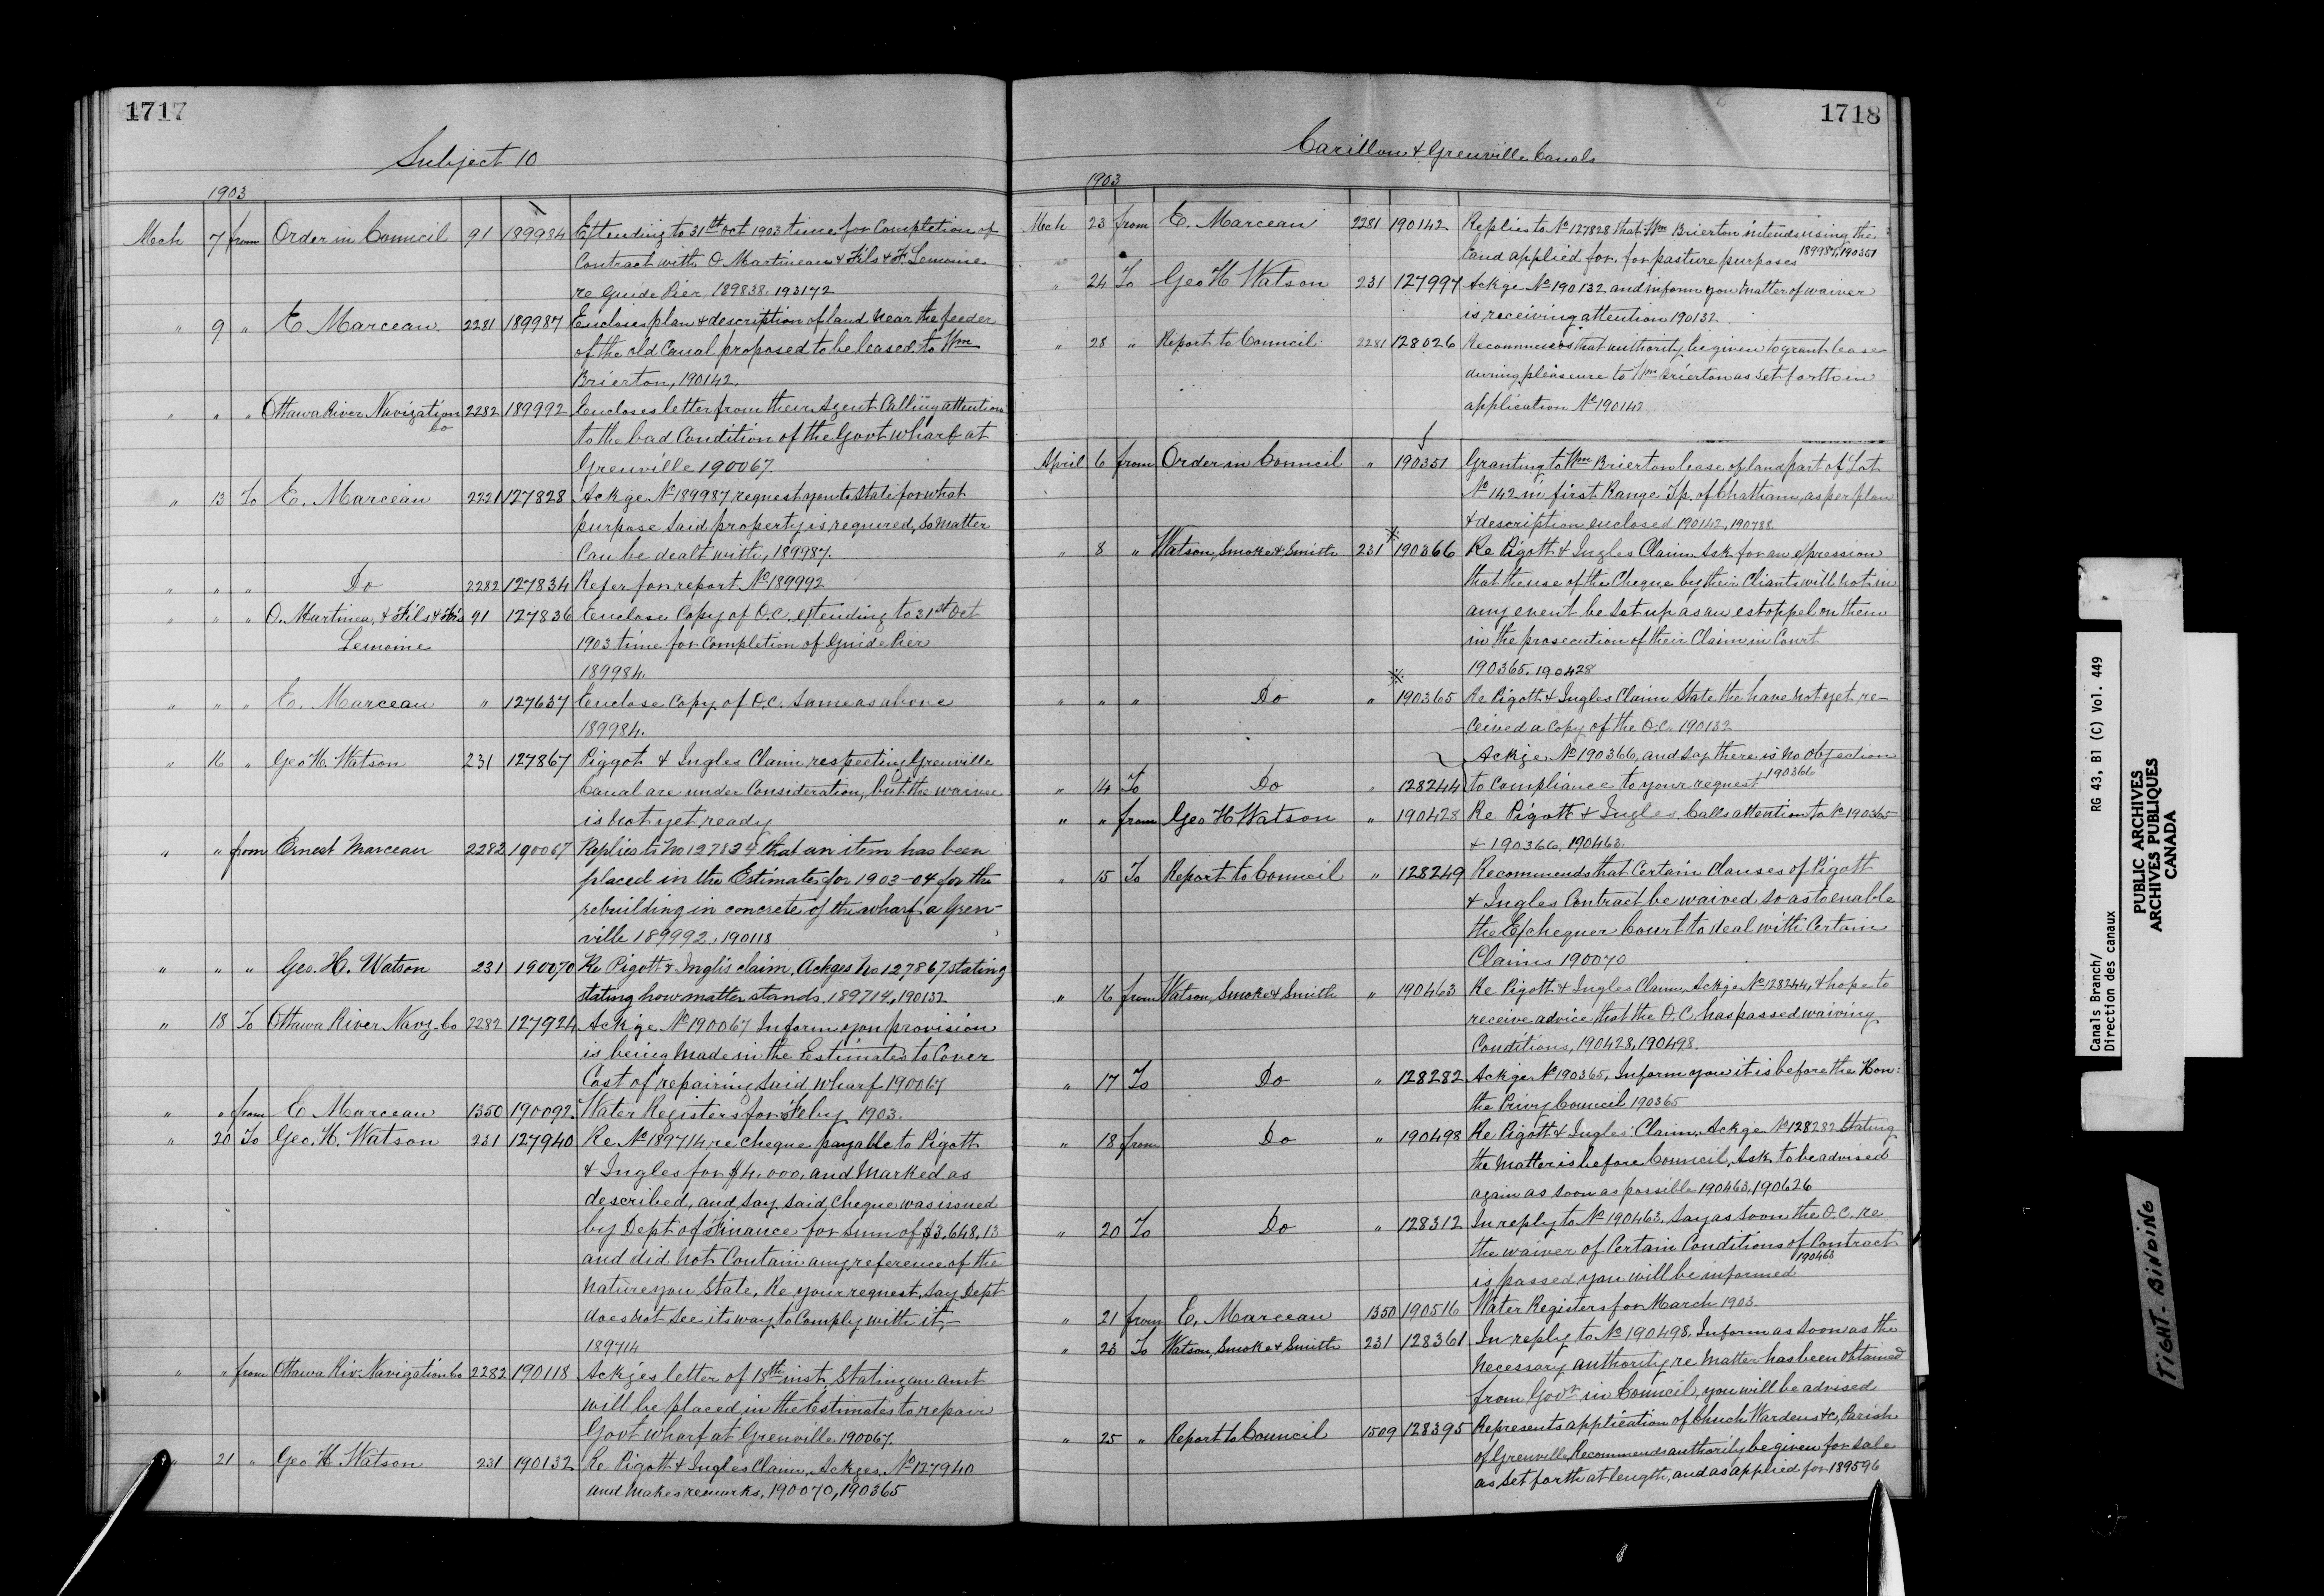 1717
Subject 10
1903
Mch 7 from Order in Council 91 189984 Extending to 31st Oct 1903 time for Completion of
Contract with O Martineau & Fils & F. Lemoine
re Guide Pier 189838. 193172
" 9 " E Marceau 2281 189987 Encloses plan & description of land near the feeder
of the old Canal proposed to be leased to Wm
Brierton, 190142.
" " " Ottawa River Navigation Co 2282 189992 Encloses letter from their Agent Calling attention
to the bad Condition of the Govt wharf at
Grenville 190067.
" 13 To E. Marceau 2221 127828 Ackge No 189987 request you to State for what
purpose said property is required, so Matter
Can be dealt with, 189987.
" " " Do 2282 127834 Refer for report No 189992
" " " O. Martinea, & Fils & Frs 91 127836 Enclose Copy of O.C. extending to 31st Oct
Lemoine 1903 time for Completion of Guide Pier
189984.
" " " E. Marceau " 127637 Enclose Copy of O.C. same as above
189984.
" 16 " Geo H. Watson 231 127867 Piggot & Ingles Claim respecting Grenville
Canal are under Consideration, but the waiver
is not yet ready
" " from Ernest Marceau 2282 190067 Replies to No 127834 that an item has been
placed in the Estimates for 1903-04 for the
rebuilding in concrete of the wharf a Gren-
ville 189992, 190118
" " " Geo. H. Watson 231 190070 Re Pigott & Inglis claim. Ackges No 127867 stating
stating how matter stands. 189714, 190132
" 18 To Ottawa River Navg. Co 2282 127924 Ackge No 190067 Inform you provision
is being Made in the Estimates to Cover
Cost of repairing said wharf 190067
" " from E Marceau 1350 190092 Water Registers for Feby 1903.
" 20 To Geo. H. Watson 231 127940 Re No 189714 re cheque payable to Pigott
& Ingles for $4.000, and Marked as
described, and say said cheque was issued
by Dept of Finance for sum of $3,648.13
and did not Contain any reference of the
Nature you State. Re your request, say Dept
does not see its way to Comply with it,—
189714
" " from Ottawa Riv. Navigation Co 2282 190118 Ackges letter of 18th inst. Stating an amt
will be placed in the Estimates to repair
Govt wharf at Grenville 190067.
" 21 " Geo H Watson 231 190132 Re Pigott & Ingles Claim, Ackges No 127940
and Makes remarks, 190070, 190365
1718
Carillon & Grenville Canals
1903
Mch 23 from E. Marceau 2281 190142 Replies to No 127828 that Wm Brierton intends using the
land applied for, for pasture purposes 189987, 190351
" 24 To Geo H Watson 231 127997 Ackge No 190132 and inform you Matter of waiver
is receiving attention 190132
" 28 " Report to Council 2281 128026 Recommends that authority be given to grant lease
during pleasure to Wm Brierton as set forth in
application No 190142
April 6 from Order in Council " 190351 Granting to Wm Brierton lease of land part of Lot
No 142 in first Range Tp. of Chatham, as per plan
& description enclosed 190142, 190788
" 8 " Watson, Smoke & Smith 231 190366 Re Pigott & Ingles Claim Ask for an expression
that the use of the Cheque by their Cliants will not in
any event be set up as an estoppel on them
in the prosecution of their Claim in Court
190365, 190428
" " " Do " 190365 Re Pigott & Ingles Claim State the have not yet re-
ceived a Copy of the O.C. 190132
Ackge No 190366, and say there is no objection
" 14 To Do " 128244 to Compliance to your request 190366
" " from Geo H Watson " 190428 Re Pigott & Ingles, Calls attention to No 190365
& 190366, 190463.
" 15 To Report to Council " 128249 Recommends that Certain Clauses of Pigott
& Ingles Contract be waived so as to enable
the Exchequer Court to deal with Certain
Claims 190070
" 16 from Watson, Smoke & Smith " 190463 Re Pigott & Ingles Claim, Ackge No 128244, & hope to
receive advice that the O.C. has passed waiving
Conditions, 190428, 190498.
" 17 To Do " 128282 Ackge No 190365, Inform you it is before the Hon:
the Privy Council 190365
" 18 from Do " 190498 Re Pigott & Ingles Claim, Ackge No 128282 Stating
the Matter is before Council, Ask to be advised
again as soon as possible 190463, 190626
" 20 To Do " 128312 In reply to No 190463, say as soon the O.C. re
the waiver of Certain Conditions of Contract
is passed you will be informed 190463
" 21 from E. Marceau 1350 190516 Water Registers for March 1903.
" 23 To Watson, Smoke & Smith 231 128361 In reply to No 190498, Inform as soon as the
necessary authority re Matter has been obtained
from Govr in Council, you will be advised
" 25 " Report to Council 1509 128395 Represents application of Chuch Wardens &c, Parish
of Grenville, Recommends authority be given for sale
as set forth at length, and as applied for 189596
Canals Branch/
Direction des canaux
RG 43, B1 (C) Vol. 449
PUBLIC ARCHIVES
ARCHIVES PUBLIQUES
CANADA
TIGHT BINDING